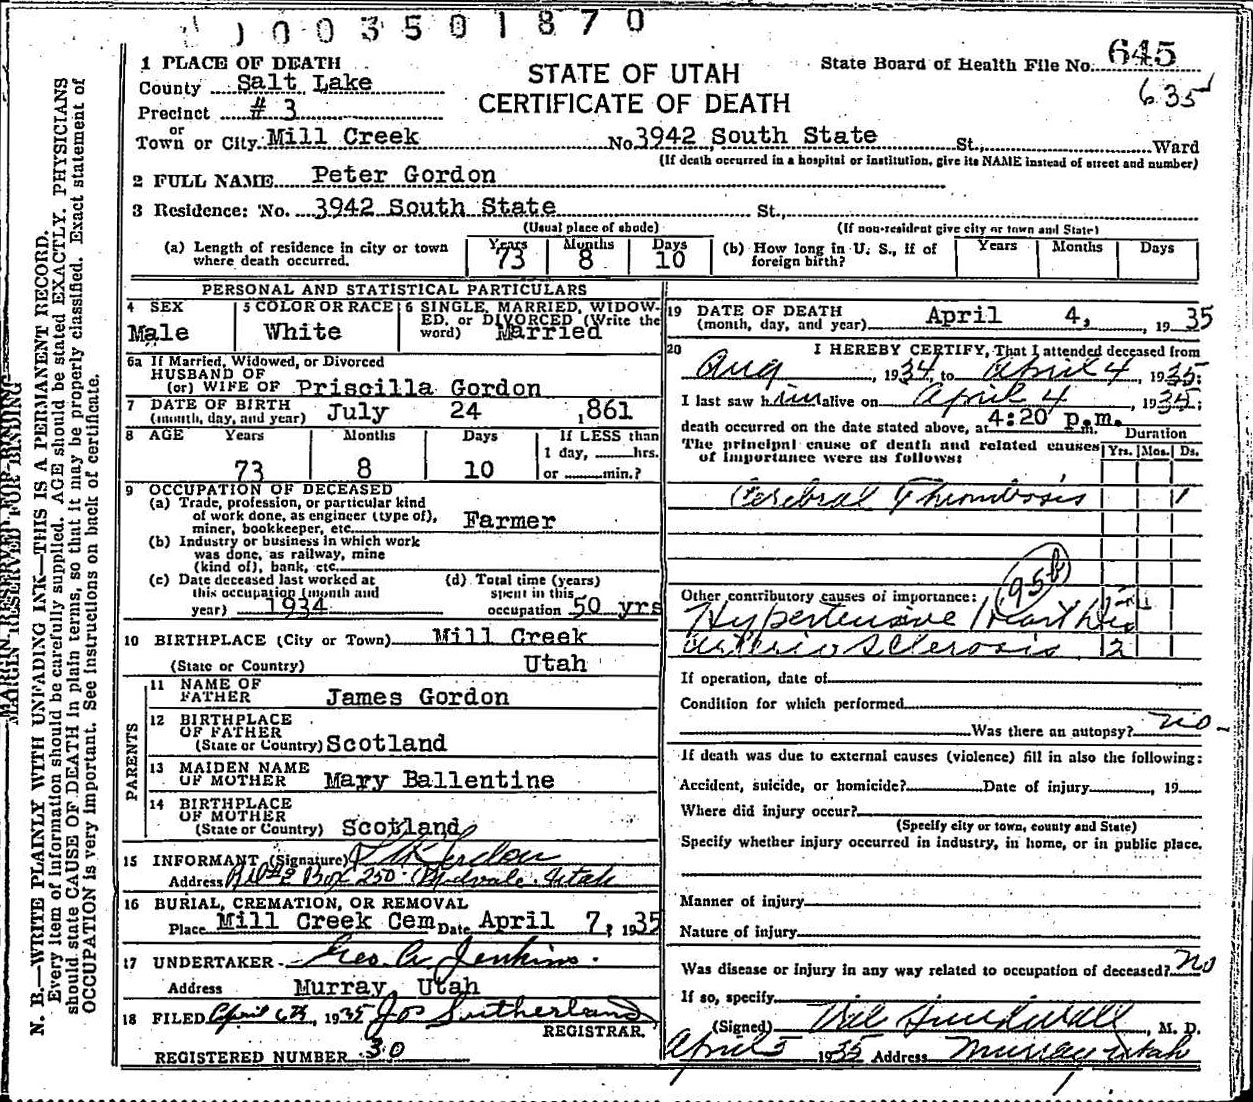 1003501870
1 PLACE OF DEATH
County Salt Lake
Precinct # 3
or
Town or City Mill Creek No 3942 South State St., Ward
STATE OF UTAH
CERTIFICATE OF DEATH
State Board of Health File No. 645
635
(If death occurred in a hospital or institution, give its NAME instead of street and number)
2 FULL NAME Peter Gordon
3 Residence: No. 3942 South State St.,
(Usual place of abode) (If non-resident give city or town and State)
(a) Length of residence in city or town where death occurred. Years 73 Months 8 Days 10
(b) How long in U. S., if of foreign birth? Years Months Days
PERSONAL AND STATISTICAL PARTICULARS
4 SEX
Male
5 COLOR OR RACE
White
6 SINGLE, MARRIED, WIDOWED, or DIVORCED (Write the word) Married
6a If Married, Widowed, or Divorced
HUSBAND OF
(or) WIFE OF Priscilla Gordon
7 DATE OF BIRTH
(month, day, and year) July 24 1861
8 AGE Years Months Days If LESS than
1 day, hrs.
73 8 10 or min.?
9 OCCUPATION OF DECEASED
(a) Trade, profession, or particular kind
of work done, as engineer (type of),
miner, bookkeeper, etc. Farmer
(b) Industry or business in which work
was done, as railway, mine
(kind of), bank, etc.
(c) Date deceased last worked at
this occupation (month and
year) 1934
(d) Total time (years)
spent in this
occupation 50 yrs
10 BIRTHPLACE (City or Town) Mill Creek
(State or Country) Utah
PARENTS
11 NAME OF
FATHER James Gordon
12 BIRTHPLACE
OF FATHER
(State or Country) Scotland
13 MAIDEN NAME
OF MOTHER Mary Ballentine
14 BIRTHPLACE
OF MOTHER
(State or Country) Scotland
15 INFORMANT (Signature)
Address Box 250 Midvale Utah
16 BURIAL, CREMATION, OR REMOVAL
Place Mill Creek Cem Date April 7, 1935
17 UNDERTAKER Geo. A Jenkins.
Address Murray, Utah
18 FILED April 6th, 1935 Jos Sutherland
REGISTRAR.
REGISTERED NUMBER 30
19 DATE OF DEATH
(month, day, and year) April 4, 1935
20 I HEREBY CERTIFY, That I attended deceased from
Aug, 1934, to April 4, 1935;
I last saw him alive on April 4, 1935;
death occurred on the date stated above, at 4:20 p.m.
The principal cause of death and related causes
of importance were as follows:
Duration
Yrs. Mos. Ds.
Cerebral Thrombosis 1
95b
Other contributory causes of importance:
Hypertensive Heart Dis
Arterio Sclerosis 2
If operation, date of
Condition for which performed
Was there an autopsy? no
If death was due to external causes (violence) fill in also the following:
Accident, suicide, or homicide? Date of injury, 19
Where did injury occur?
(Specify city or town, county and State)
Specify whether injury occurred in industry, in home, or in public place.
Manner of injury
Nature of injury
Was disease or injury in any way related to occupation of deceased? no
If so, specify
(Signed) Sundwall, M. D.
April 5 1935 Address Murray Utah
MARGIN RESERVED FOR BINDING
N. B.—WRITE PLAINLY WITH UNFADING INK—THIS IS A PERMANENT RECORD.
Every item of information should be carefully supplied. AGE should be stated EXACTLY. PHYSICIANS
should state CAUSE OF DEATH in plain terms, so that it may be properly classified. Exact statement of
OCCUPATION is very important. See instructions on back of certificate.